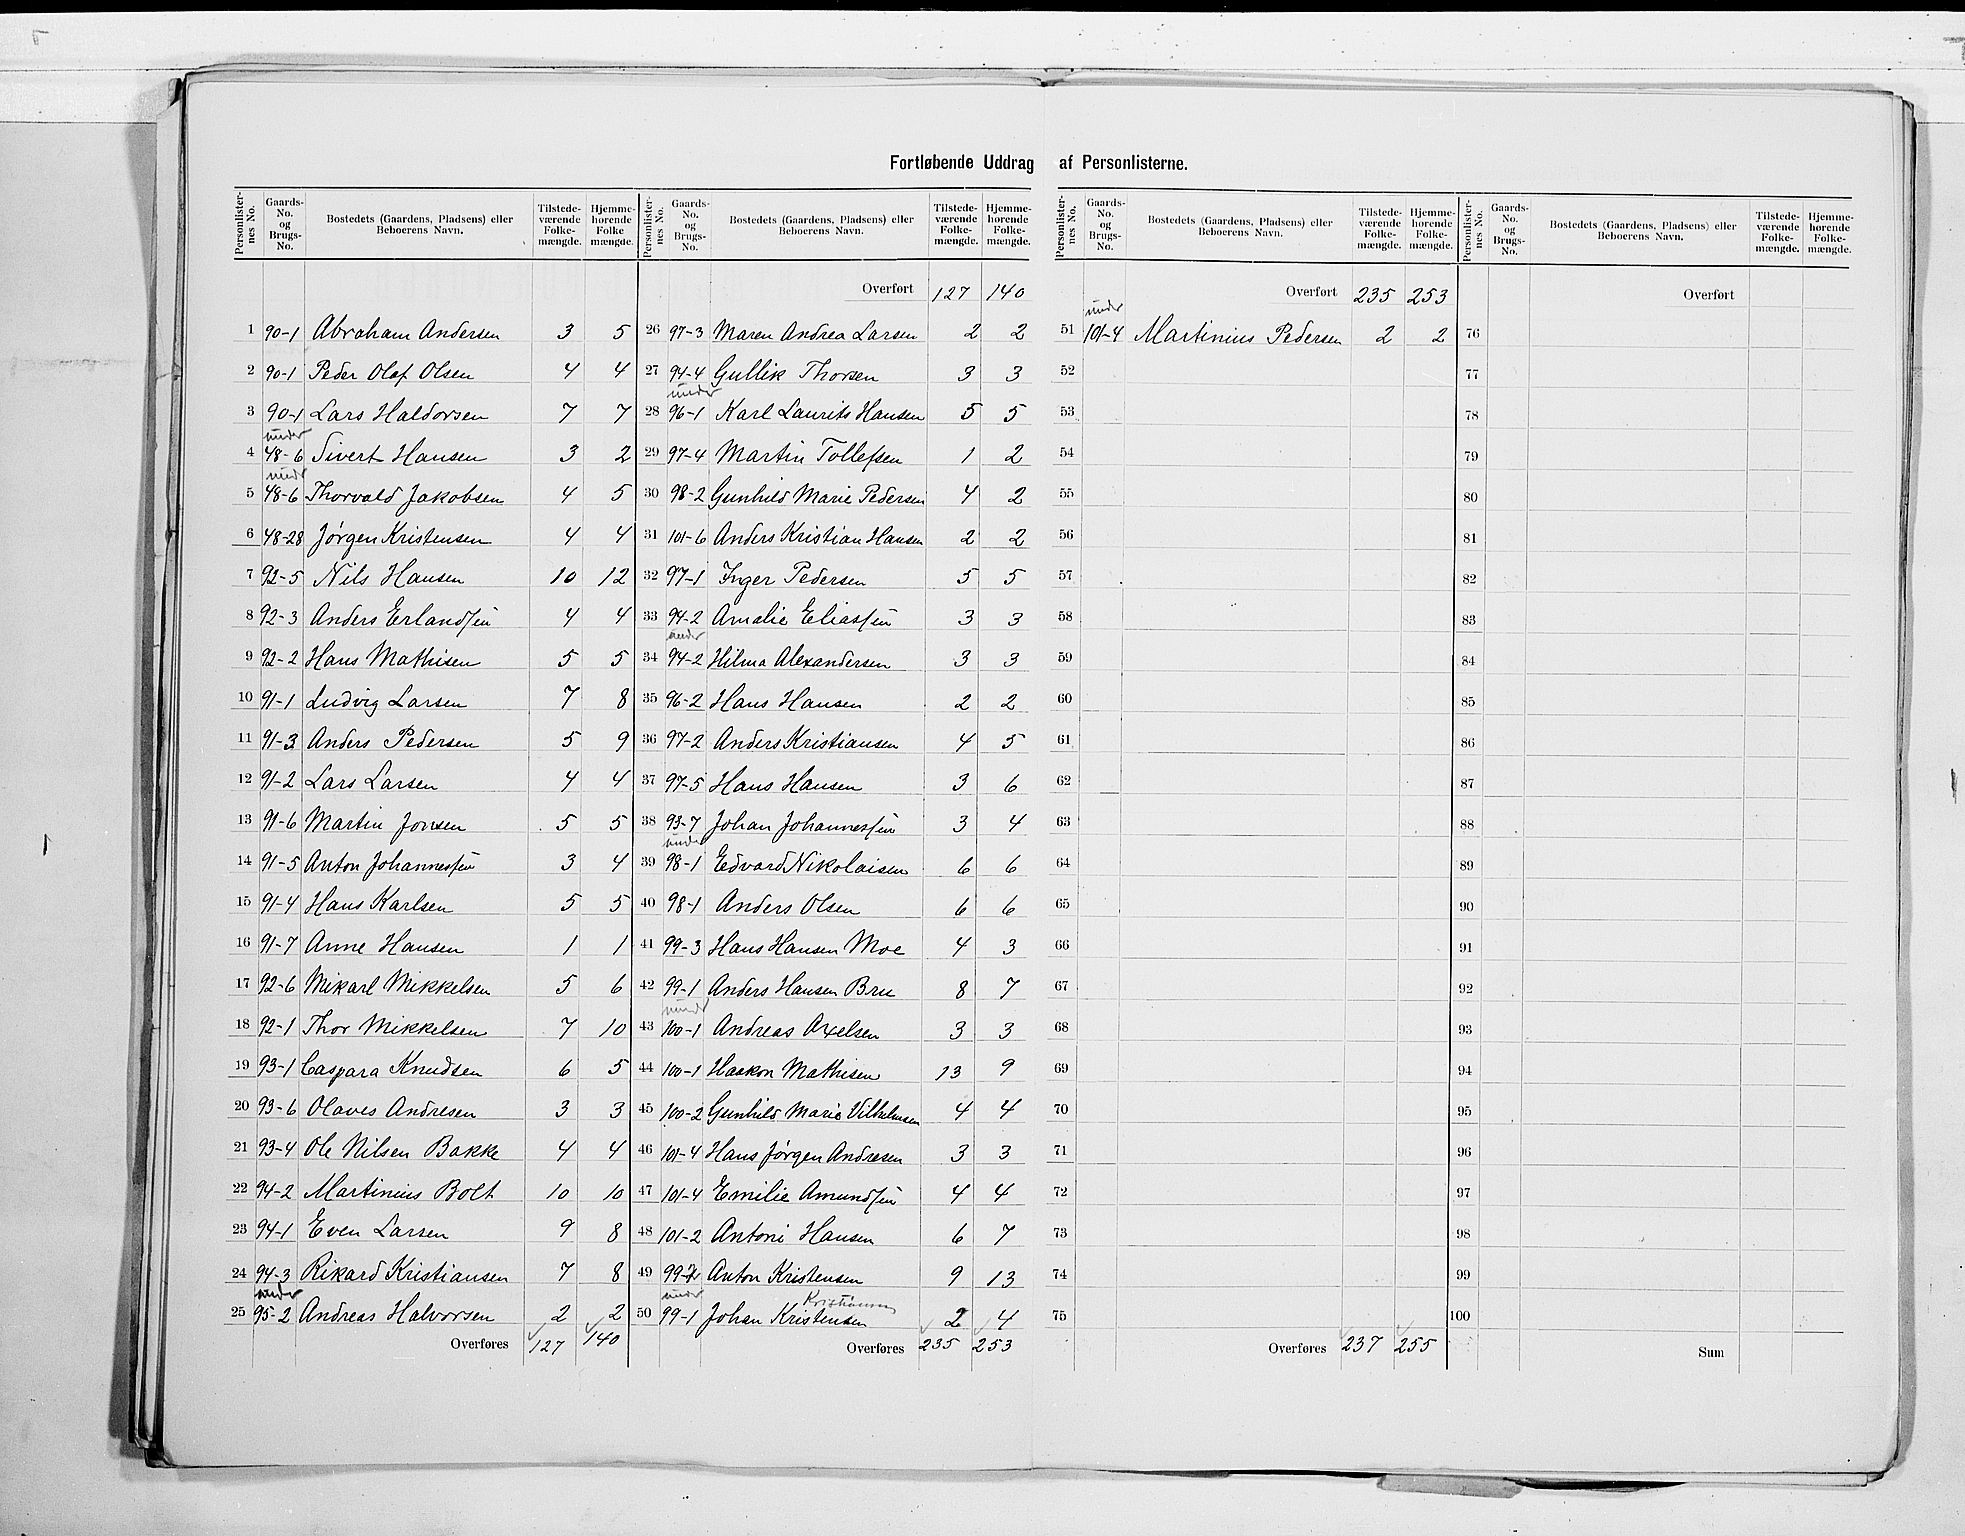 Fortløbende Uddrag af Personlisterne.
Personlister-nes No. Gaards-No. og Brugs-No. Bostedets (Gaardens, Pladsens) eller Beboerens Navn. Tilstede-værende Folke-mængde. Hjemme-hørende Folke mængde.
1 90-1 Abraham Andersen 3 5
2 90-1 Peder Olaf Olsen 4 4
3 90-1 Lars Haldorsen 7 7
under
4 48-6 Sivert Hansen 3 2
under
5 48-6 Thorvald Jakobsen 4 5
6 48-28 Jørgen Kristensen 4 4
7 92-5 Nils Hansen 10 12
8 92-3 Anders Erlandsen 4 4
9 92-2 Hans Mathisen 5 5
10 91-1 Ludvig Larsen 7 8
11 91-3 Anders Pedersen 5 9
12 91-2 Lars Larsen 4 4
13 91-6 Martin Jonsen 5 5
14 91-5 Anton Johannessen 3 4
15 91-4 Hans Karlsen 5 5
16 91-7 Anne Hansen 1 1
17 92-6 Mikarl Mikkelsen 5 6
18 92-1 Thor Mikkelsen 7 10
19 93-1 Caspara Knudsen 6 5
20 93-6 Olaves Andresen 3 3
21 93-4 Ole Nilsen Bakke 4 4
22 94-2 Martinius Bolt 10 10
23 94-1 Even Larsen 9 8
24 94-3 Rikard Kristiansen 7 8
under
25 95-2 Andreas Halvorsen 2 2
Overføres 127 140
Personlister-nes No. Gaards-No. og Brugs-No. Bostedets (Gaardens, Pladsens) eller Beboerens Navn. Tilstede-værende Folke-mængde. Hjemme-hørende Folke-mængde.
Overført 127 140
26 97-3 Maren Andrea Larsen 2 2
27 94-4 Gullik Thorsen 3 3
under
28 96-1 Karl Laurits Hansen 5 5
29 97-4 Martin Tollefsen 1 2
30 98-2 Gunhild Marie Pedersen 4 2
31 101-6 Anders Kristian Hansen 2 2
32 97-1 Inger Pedersen 5 5
33 94-2 Amalie Eliassen 3 3
under
34 94-2 Hilma Alexandersen 3 3
35 96-2 Hans Hansen 2 2
36 97-2 Anders Kristiansen 4 5
37 97-5 Hans Hansen 3 6
38 93-7 Johan Johannessen 3 4
under
39 98-1 Edvard Nikolaisen 6 6
40 98-1 Anders Olsen 6 6
41 99-3 Hans Hansen Moe 4 3
42 99-1 Anders Hansen Bru 8 7
under
43 100-1 Andreas Axelsen 3 3
44 100-1 Haakon Mathisen 13 9
45 100-2 Gunhild Marie Vilhelmsen 4 4
46 101-4 Hans Jørgen Andresen 3 3
47 101-4 Emilie Amundsen 4 4
48 101-2 Antoni Hansen 6 7
49 99-2 Anton Kristensen 9 13
under Kristiansen
50 99-1 Johan Kristensen 2 4
Overføres 235 253
Personlister-nes No. Gaards-No. og Brugs-No. Bostedets (Gaardens, Pladsens) eller Beboerens Navn. Tilstede-værende Folke-mængde. Hjemme-hørende Folke-mængde.
Overført 235 253
under
51 101-4 Martinius Pedersen 2 2
52
53
54
55
56
57
58
59
60
61
62
63
64
65
66
67
68
69
70
71
72
73
74
75
Overføres 237 255
Personlister-nes No. Gaards-No. og Brugs-No. Bostedets (Gaardens, Pladsens) eller Beboerens Navn. Tilstede-værende Folke-mængde. Hjemme-hørende Folke-mængde.
Overført
76
77
78
79
80
81
82
83
84
85
86
87
88
89
90
91
92
93
94
95
96
97
98
99
100
Sum